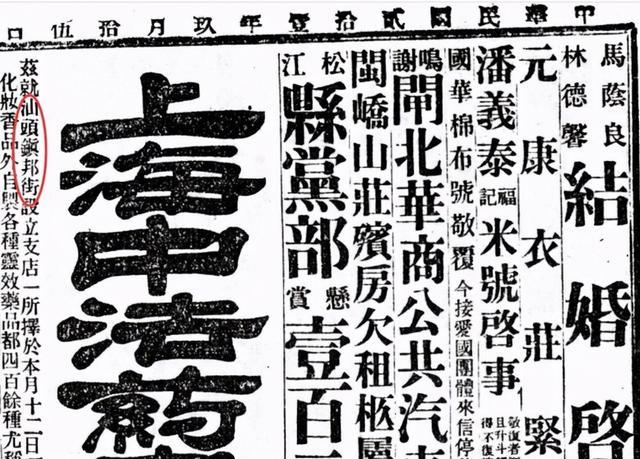 中華民國貳拾壹年玖月拾伍日
馬蔭良
林德馨
結婚啓
元康衣莊緊
潘義泰福記米號啓事
敬復者
且升斗
得不復
國華棉布號敬覆
今接愛國團體來信停
鳴謝
閘北華商公共汽車
閩嶠山莊殯房欠租柩屬
松江
縣黨部
懸賞
壹百元
上海中法葯
茲就汕頭鎭邦街設立支店一所擇於本月十二日
化妝香品外自製各種靈效藥品都四百餘種尤稱